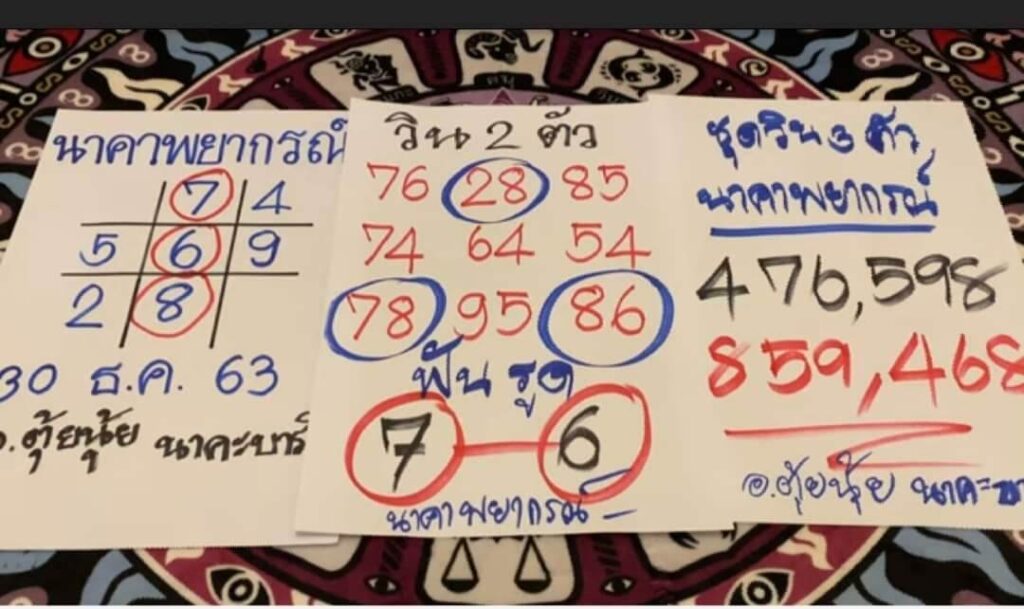 นาคาพยากรณ์
7 4
5 6 9
2 8
30 ธ.ค. 63
อ.ตุ้ยนุ้ย นาคะบารี
วิน 2 ตัว
76 28 85
74 64 54
78 95 86
ฟันรูด
7 — 6
นาคาพยากรณ์
ชุดวิน 3 ตัว
นาคาพยากรณ์
476,598
859,468
อ.ตุ้ยนุ้ย